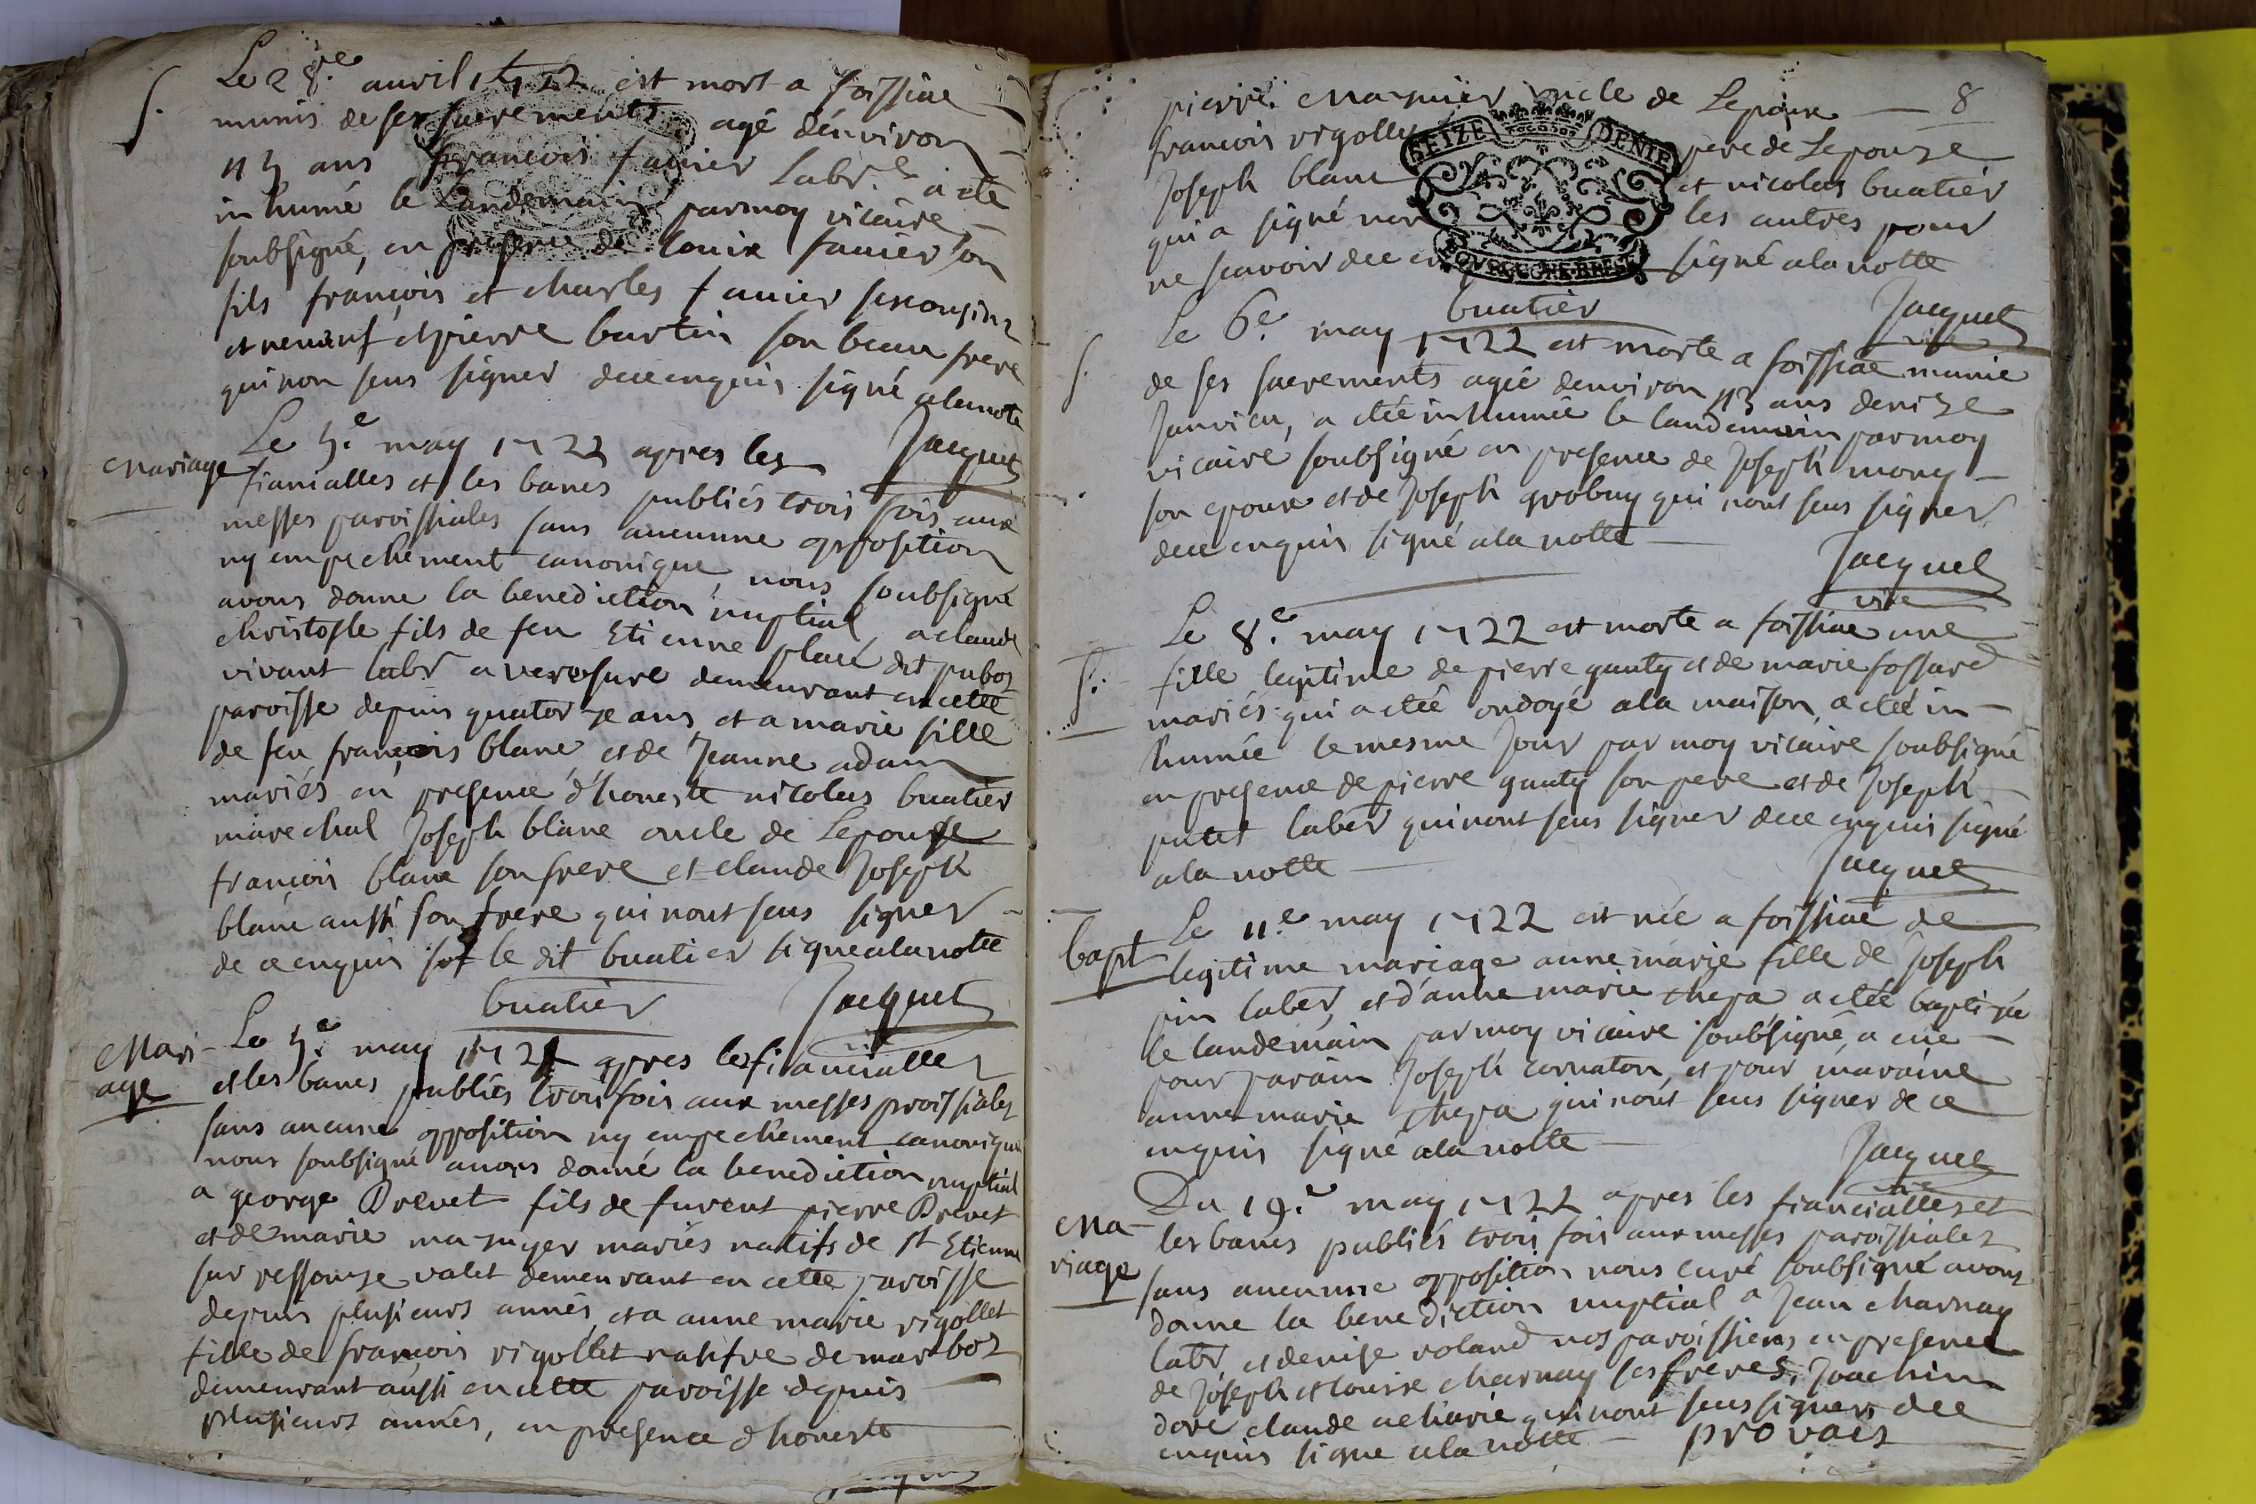 S.
Le 28.e auril 1722 est mort a foissiae
munis de ses sacrements agé d'enuiron
45 ans françois fauier Labr.r a été
inhumé le landemain parmoy vicaire
soubsigné, en presence de louix fauier son
fils françois et charles fauier ses cousins
et pierre burtin son beau frere
qui non seus signer dece enquis signé alanote
Jacquet
Mariage
Le 5.e may 1722 apres les
fiancialles et les bancs publiés trois fois aux
messes paroissiales sans aucunne opposition
ny empechement canonique, nous soubsigné
avons donne la benediction nuptial, a claude
christofle fils de feu Etienne placé dit pubos
vivant labr a verosure demeurant en cette
paroisse depuis quatorze ans, et a marie fille
de feu françois blanc et de Jeanne adam
mariés en presence d'honeste nicolas buatier
marechal Joseph blanc oncle de Lepouse
françois blanc son frere et claude Joseph
blanc aussi son frere qui nont seus signer
de ce enquis sof le dit buatier signe alanotte
buatier Jacquet
vire
Mari-
age
Le 5.e may 1722 apres les fiancialles
et les bancs publiés trois fois aux messes proissiales
sans aucune opposition ny empechement canonique
nous soubsigné avons donné la benediction nuptial
a george Brevet fils de furent pierre Brevet
et de marie mazuyer mariés natifs de st Etienne
sur ressouze valet demeurant en cette paroisse
depuis plusieurs annés, et a anne marie rigollet
fille de françois rigollet natifve de marboz
demeurant aussi en cette paroisse depuis
plusieurs annés, en presence d'honeste
pierre mazuier oncle de Lepoux 8
françois rigollet pere de Lepouze
Joseph blanc et nicolas buatier
qui a signé non les autres pour
ne scavoir dece signé ala notte
SEIZE DENIE
BOVRGOGNE BRESSE
buatier Jacquet
vire
S.
Le 6.e may 1722 est morte a foissiae munie
de ses sacrements agée denviron 43 ans denize
Janvieu, a étée inhumée le landemain parmoy
vicaire soubsigné en presence de Joseph mony
son epoux et de Joseph grobuy qui nont seus signer
dece enquis signé ala notte
Jacquet
vire
S.
Le 8.e may 1722 est morte a foissiae une
fille legitime de pierre gauty et de marie fossard
mariés qui a étée ondoyé ala maison, a été in-
humée le mesme Jour par moy vicaire soubsigné
en presence de pierre gauty son pere et de Joseph
putet laber qui nont seus signer dece enquis signé
ala notte
Jacquet
bapt
Le 11.e may 1722 est née a foissiae de
legitime mariage anne marie fille de Joseph
pin laber, et d'anne marie chepa a étée baptizée
le landemain par moy vicaire soubsigné, a eue
pour parain Joseph cornaton, et pour maraine
anne marie chepa qui nont seus signer de ce
enquis signé ala notte
Jacquet
vire
Ma-
riage
Du 19.e may 1722 apres les fiancialles et
les bancs publiés trois fois aux messes paroissiales
sans aucunne opposition nous curé soubsigné avons
donne la benediction nuptial a Jean charnay
labr, et denise roland nos paroissiens en presence
de Joseph et louise charnay ses freres, Joachim
doré claude qui nont seus signer, dece
enquis signe ala notte provais